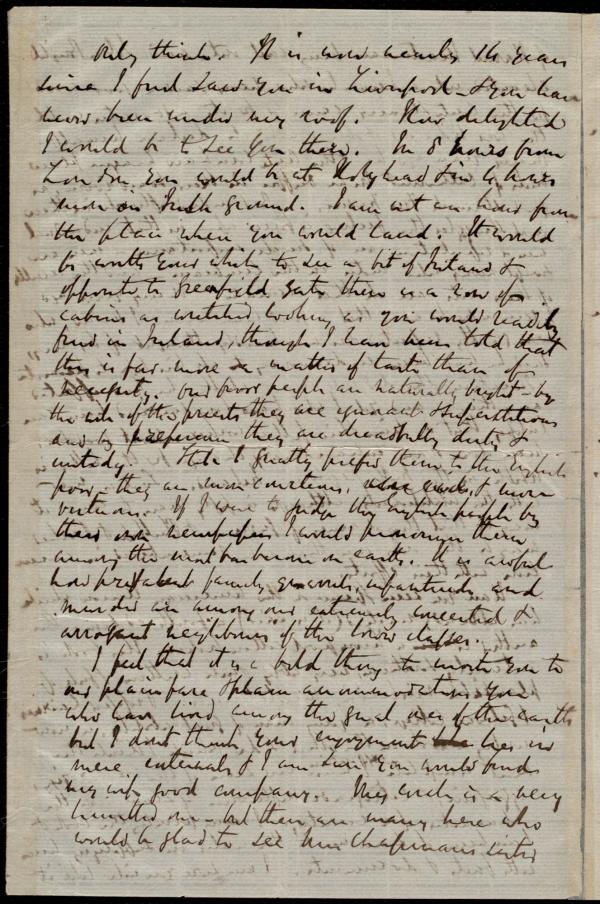 only think. It is now nearly 14 years
since I first saw you in Liverpool - & you have
never been under my roof. How delighted
I would be to see you there. In 8 hours from
London you would be at Holyhead & in 4 hours
more on Irish ground. I am not an hour from
the place where you would land. It would
be worth your while to see a bit of Ireland &
opposite to Greenfield gate there is a row of
cabins as wretched looking as you would readily
find in Ireland, though I have been told that
this is far more a matter of taste than of
necessity. Our poor people are naturally bright - by
the aid of the priests they are ignorant & superstitious
and by preference they are dreadfully dirty &
untidy. Still I greatly prefer them to the English
poor - they are more courteous, & more
virtuous. If I were to judge the English people by
their own newspapers I would pronounce them
among the most barbarous on earth. It is awful
how prevalent family quarrels, infanticide, and
murder are among our extremely conceited &
arrogant neighbours of the lower classes.
I feel that it is a bold thing to invite you to
our plain fare & plain accommodations you
who have lived among the great ones of the earth
but I don't think your enjoyment lies in
mere externals & I am sure you would find
my wife good company. My circle is a very
limited one - but there are many here who
would be glad to see Mrs Chapman's sister